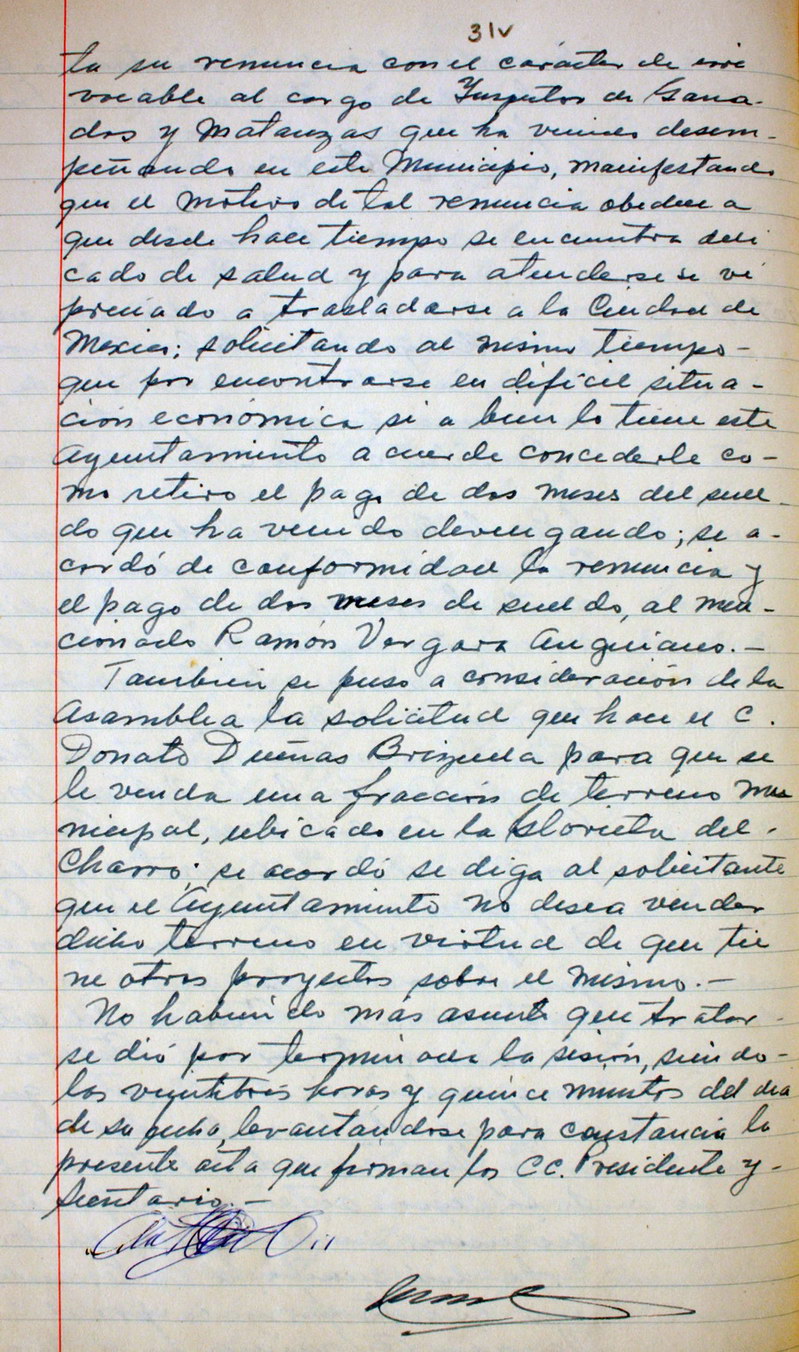 31v
ta su renuncia con el carácter de irre
vocable al cargo de Inspector de Gana-
dos y Matanzas que ha venido desem-
peñando en este Municipio, manifestando
que el motivo de tal renuncia obedece a
que desde hace tiempo se encuentra deli
cado de salud y para atenderse se vé
preciado a trasladarse a la Ciudad de
Mexico; solicitando al mismo tiempo-
que por encontrarse en dificil situa-
ción económica si a bien lo tiene este
Ayuntamiento acuerde concederle co-
mo retiro el pago de dos meses del suel-
do que ha venido devengando; se a-
cordó de conformidad la renuncia y
el pago de dos meses de sueldo, al men-
cionado Ramón Vergara Anguiano.-
También se puso a consideración de la
Asamblea la solicitud que hace el C.
Donato Dueñas Brizuela para que se
le venda una fracción de terreno mu
nicipal, ubicado en la Glorieta del.
Charro; se acordó se diga al solicitante
que el Ayuntamiento no desea vender
dicho terreno en virtud de que tie
ne otros proyectos sobre el mismo.-
No habiendo más asunto que tratar-
se dió por terminada la sesión, siendo-
las veintitres horas y quince minutos del dia
de su fecha, levantándose para constancia la
presente acta que firman los CC. Presidente y-
Secretario.-